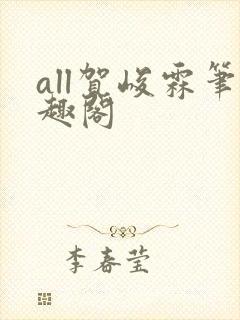 all贺峻霖笔
趣阁
李春莹